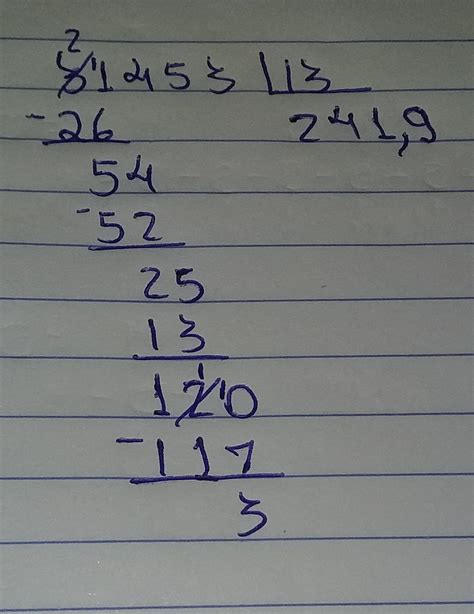 2
31453 13
-26 241,9
54
-52
25
13
1
120
-117
3